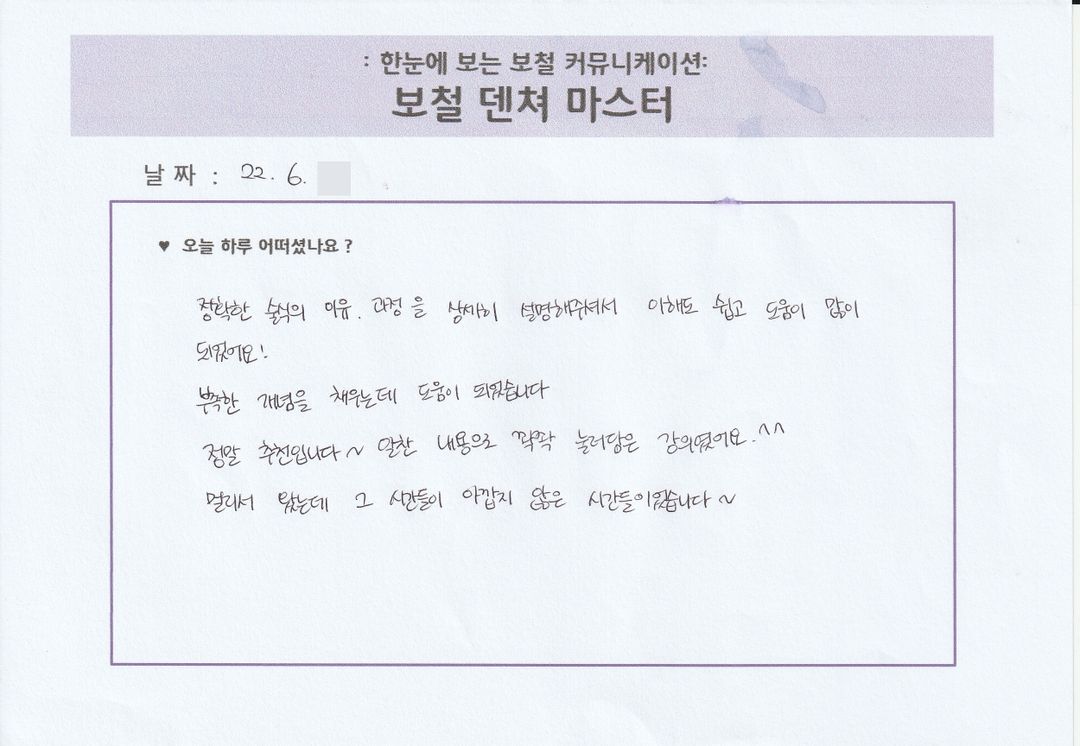 : 한눈에 보는 보철 커뮤니케이션:
보철 덴쳐 마스터
날 짜 : 22. 6.
♥ 오늘 하루 어떠셨나요 ?
정확한 술식의 이유. 과정을 상세히 설명해주셔서 이해도 쉽고 도움이 많이
되었어요!
부족한 개념을 채우는데 도움이 되었습니다
정말 추천입니다~ 알찬 내용으로 꽉꽉 눌러담은 강의였어요.^^
멀리서 왔는데 그 시간들이 아깝지 않은 시간들이었습니다~